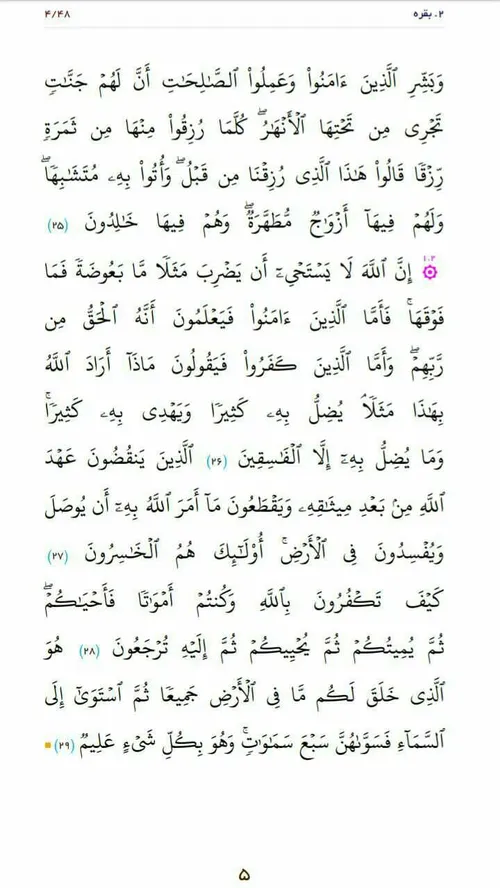 ۲. بقره
۴/۴۸
وَبَشِّرِ ٱلَّذِينَ ءَامَنُوا۟ وَعَمِلُوا۟ ٱلصَّـٰلِحَـٰتِ أَنَّ لَهُمْ جَنَّـٰتٍ
تَجْرِى مِن تَحْتِهَا ٱلْأَنْهَـٰرُ ۖ كُلَّمَا رُزِقُوا۟ مِنْهَا مِن ثَمَرَةٍ
رِّزْقًا قَالُوا۟ هَـٰذَا ٱلَّذِى رُزِقْنَا مِن قَبْلُ ۖ وَأُتُوا۟ بِهِۦ مُتَشَـٰبِهًا ۖ
وَلَهُمْ فِيهَآ أَزْوَٰجٌ مُّطَهَّرَةٌ ۖ وَهُمْ فِيهَا خَـٰلِدُونَ (۲۵)
۱.۳ إِنَّ ٱللَّهَ لَا يَسْتَحْىِۦٓ أَن يَضْرِبَ مَثَلًا مَّا بَعُوضَةً فَمَا
فَوْقَهَا ۚ فَأَمَّا ٱلَّذِينَ ءَامَنُوا۟ فَيَعْلَمُونَ أَنَّهُ ٱلْحَقُّ مِن
رَّبِّهِمْ ۖ وَأَمَّا ٱلَّذِينَ كَفَرُوا۟ فَيَقُولُونَ مَاذَآ أَرَادَ ٱللَّهُ
بِهَـٰذَا مَثَلًا ۘ يُضِلُّ بِهِۦ كَثِيرًا وَيَهْدِى بِهِۦ كَثِيرًا ۚ
وَمَا يُضِلُّ بِهِۦٓ إِلَّا ٱلْفَـٰسِقِينَ (۲۶) ٱلَّذِينَ يَنقُضُونَ عَهْدَ
ٱللَّهِ مِنۢ بَعْدِ مِيثَـٰقِهِۦ وَيَقْطَعُونَ مَآ أَمَرَ ٱللَّهُ بِهِۦٓ أَن يُوصَلَ
وَيُفْسِدُونَ فِى ٱلْأَرْضِ ۚ أُو۟لَـٰٓئِكَ هُمُ ٱلْخَـٰسِرُونَ (۲۷)
كَيْفَ تَكْفُرُونَ بِٱللَّهِ وَكُنتُمْ أَمْوَٰتًا فَأَحْيَـٰكُمْ ۖ
ثُمَّ يُمِيتُكُمْ ثُمَّ يُحْيِيكُمْ ثُمَّ إِلَيْهِ تُرْجَعُونَ (۲۸) هُوَ
ٱلَّذِى خَلَقَ لَكُم مَّا فِى ٱلْأَرْضِ جَمِيعًا ثُمَّ ٱسْتَوَىٰٓ إِلَى
ٱلسَّمَآءِ فَسَوَّىٰهُنَّ سَبْعَ سَمَـٰوَٰتٍ ۚ وَهُوَ بِكُلِّ شَىْءٍ عَلِيمٌ (۲۹)
۵